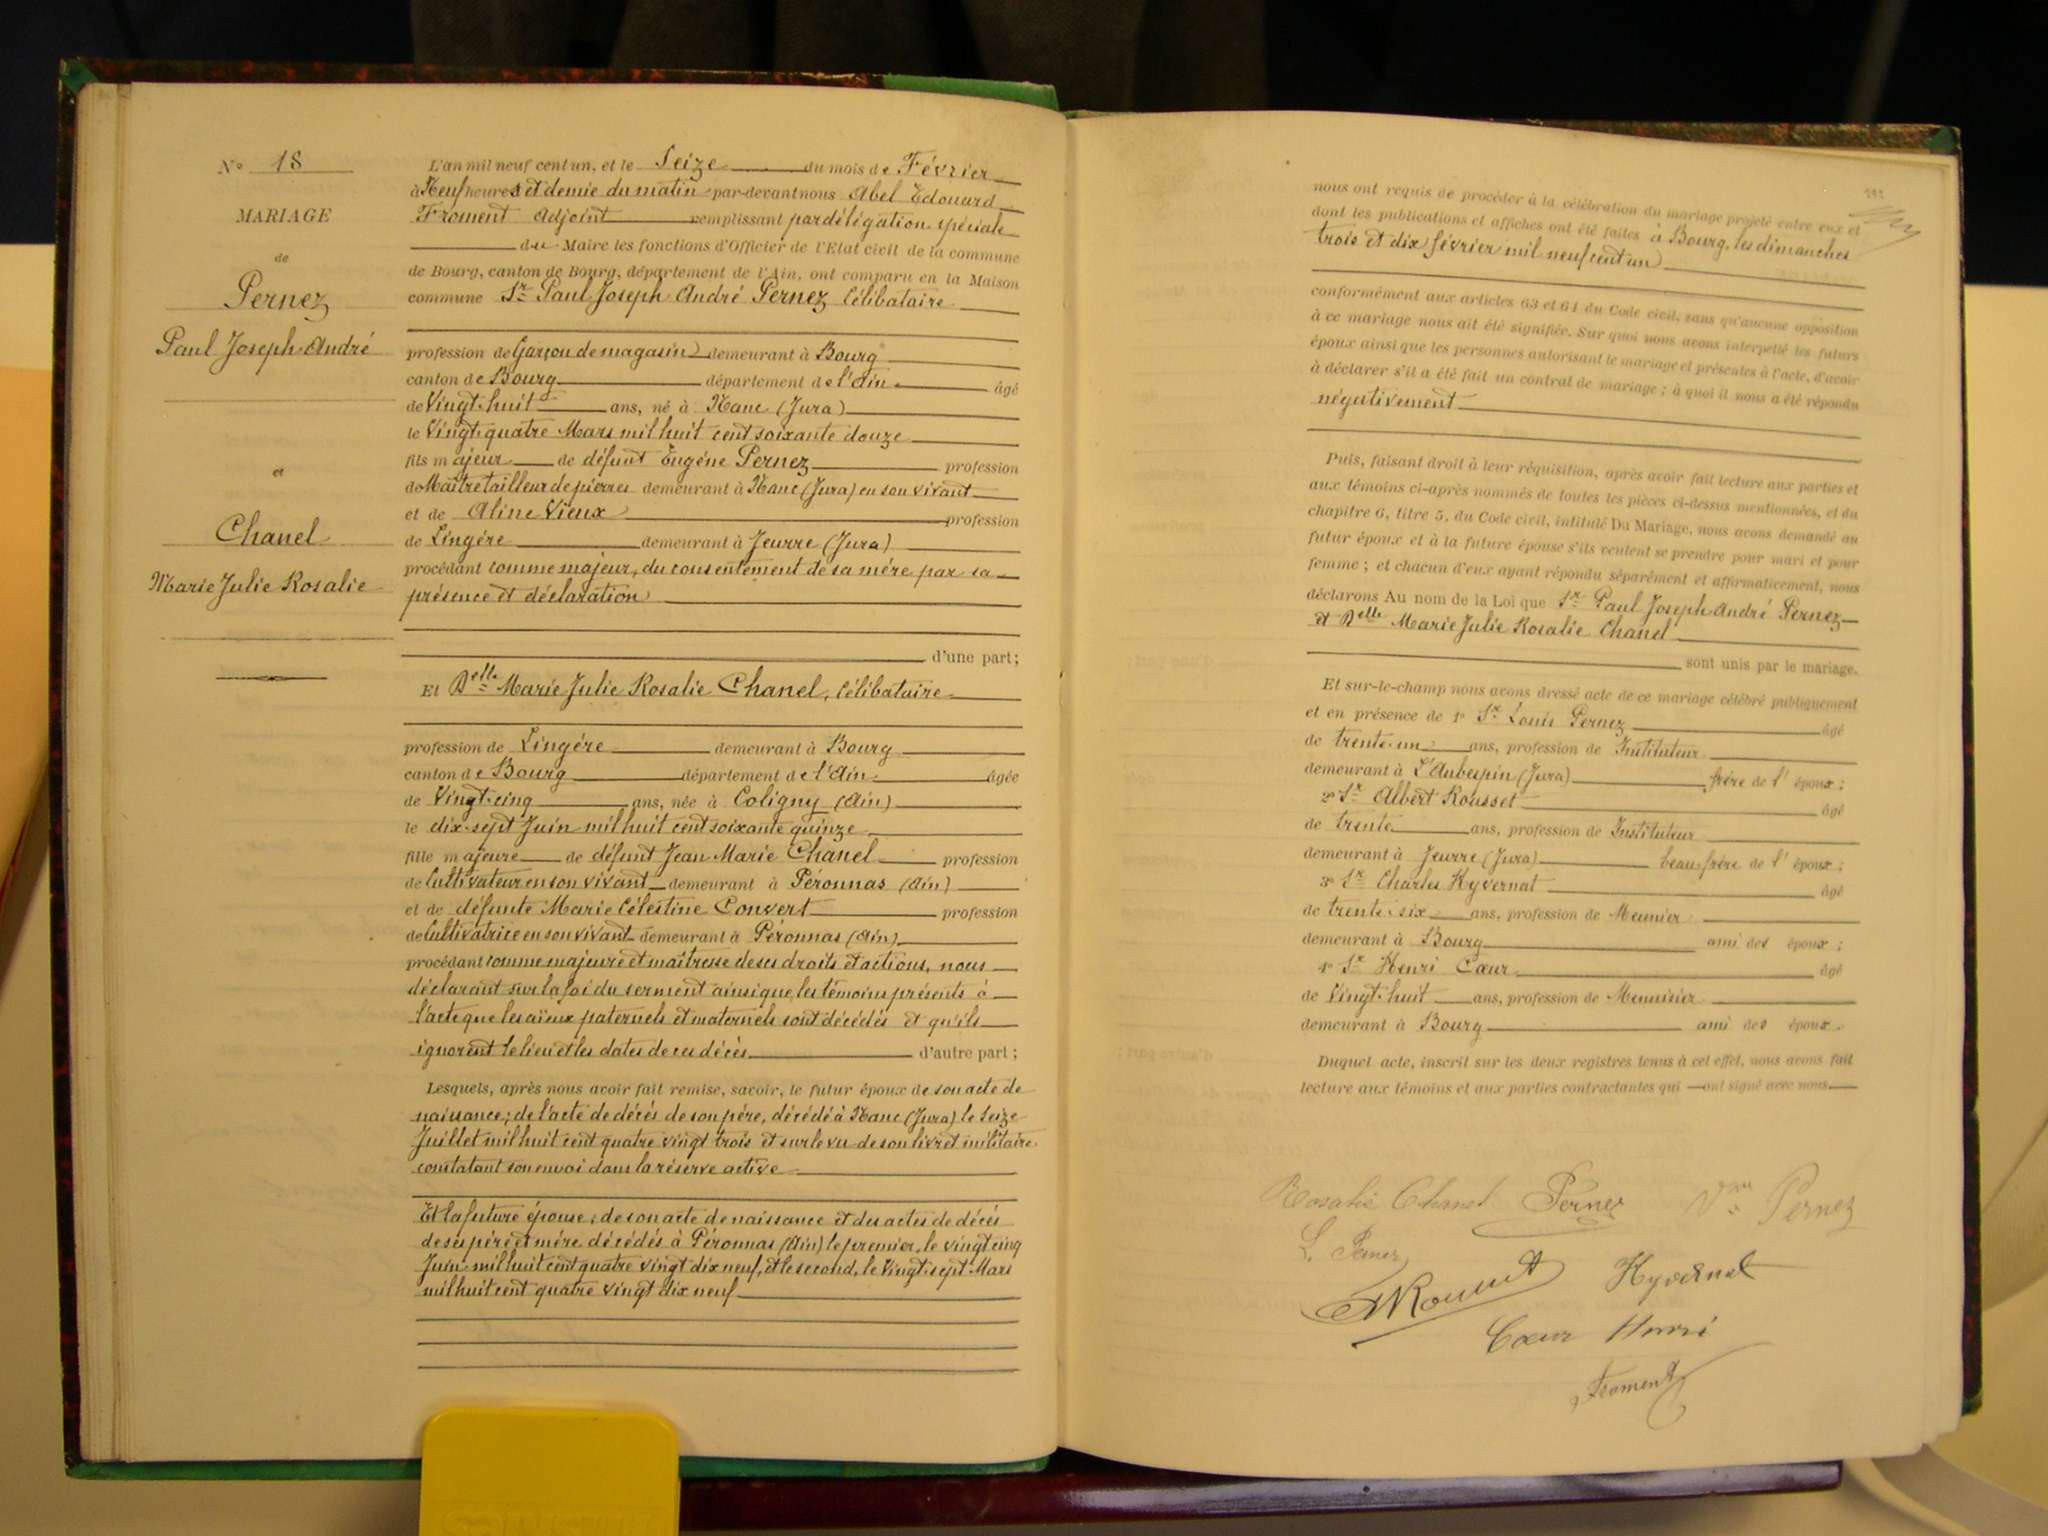 N° 18
MARIAGE
de
Pernez
Paul Joseph André
et
Chanel
Marie Julie Rosalie
L'an mil neuf cent un, et le Seize du mois de Février
à Neuf heures et demie du matin par-devant nous Abel Edouard
Froment Adjoint remplissant par délégation spéciale
du Maire les fonctions d'Officier de l'Etat civil de la commune
de Bourg, canton de Bourg, département de l'Ain, ont comparu en la Maison
commune Sr Paul Joseph André Pernez Célibataire
profession de Garçon de magasin demeurant à Bourg
canton de Bourg département de l'Ain âgé
de Vingt-huit ans, né à Nanc (Jura)
le Vingt-quatre Mars mil huit cent soixante douze
fils majeur de défunt Eugène Pernez profession
de Maître tailleur de pierres demeurant à Nanc (Jura) en son vivant
et de Aline Vieux profession
de Lingère demeurant à Jeurre (Jura)
procédant comme majeur, du consentement de sa mère par sa
présence et déclaration
d'une part;
Et Delle Marie Julie Rosalie Chanel, Célibataire
profession de Lingère demeurant à Bourg
canton de Bourg département de l'Ain âgée
de Vingt-cinq ans, née à Coligny (Ain)
le dix-sept Juin mil huit cent soixante quinze
fille majeure de défunt Jean Marie Chanel profession
de Cultivateur en son vivant demeurant à Péronnas (Ain)
et de défunte Marie Célestine Convert profession
de Cultivatrice en son vivant demeurant à Péronnas (Ain)
procédant comme majeure et maîtresse de ses droits et actions, nous
déclarant sur la foi du serment ainsi que les témoins présents à
l'acte que les aïeux paternels et maternels sont décédés et qu'ils
ignorent le lieu et les dates de ces décès d'autre part;
Lesquels, après nous avoir fait remise, savoir, le futur époux de son acte de
naissance; de l'acte de décès de son père, décédé à Nanc (Jura) le Seize
Juillet mil huit cent quatre vingt trois et sur le vu de son livret militaire
constatant son envoi dans la réserve active
Et la future épouse; de son acte de naissance et des actes de décès
de ses père et mère décédés à Péronnas (Ain) le premier, le vingt cinq
Juin mil huit cent quatre vingt dix neuf, et le second, le Vingt-sept Mars
mil huit cent quatre vingt dix neuf
nous ont requis de procéder à la célébration du mariage projeté entre eux et
dont les publications et affiches ont été faites à Bourg, les dimanches
trois et dix février mil neuf cent un
conformément aux articles 63 et 64 du Code civil, sans qu'aucune opposition
à ce mariage nous ait été signifiée. Sur quoi nous avons interpellé les futurs
époux ainsi que les personnes autorisant le mariage et présentes à l'acte, d'avoir
à déclarer s'il a été fait un contrat de mariage; à quoi il nous a été répondu
négativement
Puis, faisant droit à leur réquisition, après avoir fait lecture aux parties et
aux témoins ci-après nommés de toutes les pièces ci-dessus mentionnées, et du
chapitre 6, titre 5, du Code civil, intitulé Du Mariage, nous avons demandé au
futur époux et à la future épouse s'ils veulent se prendre pour mari et pour
femme; et chacun d'eux ayant répondu séparément et affirmativement, nous
déclarons Au nom de la Loi que Sr Paul Joseph André Pernez
et Delle Marie Julie Rosalie Chanel
sont unis par le mariage.
Et sur-le-champ nous avons dressé acte de ce mariage célébré publiquement
et en présence de 1° Sr Louis Pernez âgé
de trente-un ans, profession de Instituteur
demeurant à L'Aubespin (Jura) frère de l'époux;
2° Sr Albert Rousset âgé
de trente ans, profession de Instituteur
demeurant à Jeurre (Jura) beau-frère de l'époux;
3° Sr Charles Hyvernat âgé
de trente-six ans, profession de Meunier
demeurant à Bourg ami des époux;
4° Sr Henri Cœur âgé
de Vingt-huit ans, profession de Menuisier
demeurant à Bourg ami des époux.
Duquel acte, inscrit sur les deux registres tenus à cet effet, nous avons fait
lecture aux témoins et aux parties contractantes qui ont signé avec nous
Rosalie Chanel Pernez Vve Pernez
L. Pernez
A Rousset Hyvernat
Cœur Henri
Froment